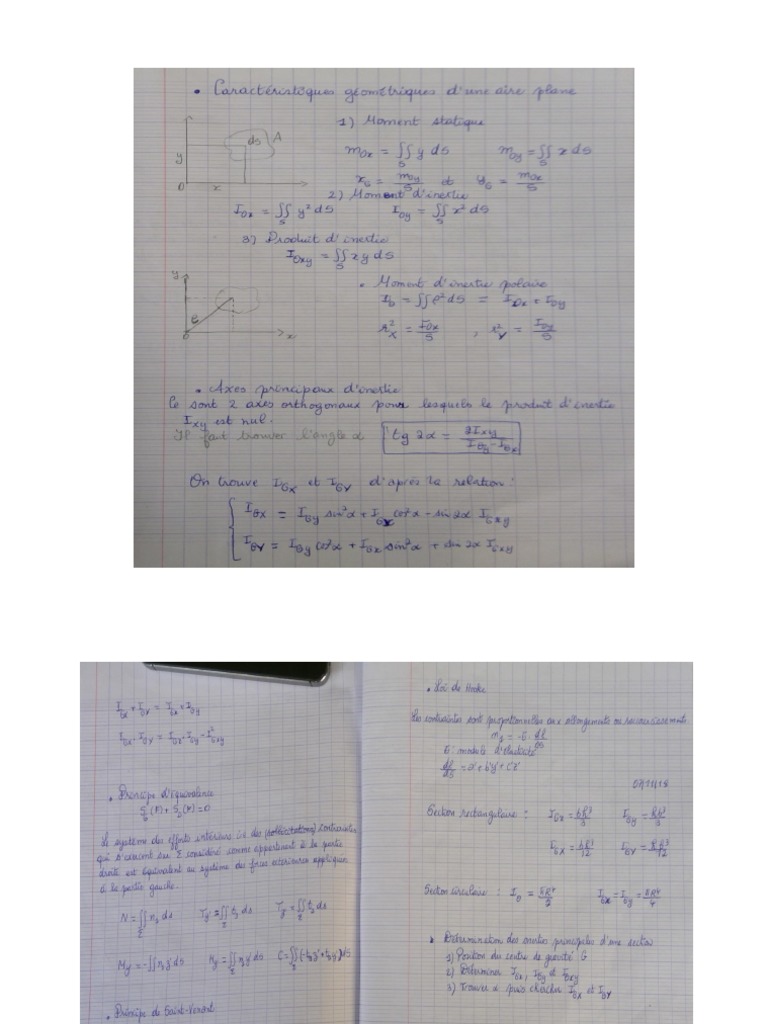 • Caractéristiques géométriques d'une aire plane
1) Moment statique
dS A
y
O x
m_Ox = ∬_S y dS   m_Oy = ∬_S x dS
x_G = m_Oy/S et y_G = m_Ox/S
2) Moment d'inertie
I_Ox = ∬_S y² dS   I_Oy = ∬_S x² dS
3) Produit d'inertie
I_Oxy = ∬_S xy dS
y
• Moment d'inertie polaire
I_O = ∬ ρ² dS = I_Ox + I_Oy
ρ
O x
r²_X = I_Ox/S , r²_Y = I_Oy/S
• Axes principaux d'inertie
Ce sont 2 axes orthogonaux pour lesquels le produit d'inertie
I_xy est nul.
Il fait trouver l'angle α   tg 2α = 2Ixy/(I_Gy - I_Gx)
On trouve I_GX et I_GY d'après la relation :
I_GX = I_Gy sin²α + I_Gx co²α - sin 2α I_Gxy
I_GY = I_Gy co²α + I_Gx sin²α + sin 2α I_Gxy
I_GX + I_GY = I_Gx + I_Gy
I_GX . I_GY = I_Gx . I_Gy - I²_Gxy
• Principe d'équivalence
Le système des efforts intérieurs
qui s'exercent sur Σ considéré comme appartenant à la partie
droite est équivalent au système des forces extérieures appliquées
à la partie gauche.
N = ∬_Σ n_y ds
• Principe de Saint-Venant
• Loi de Hooke
Les contraintes sont proportionnelles aux allongements ou raccourcissements
module d'élasticité
Section rectangulaire :
Section circulaire :
• Détermination des inerties principales d'une section
1) Position du centre de gravité G
2) Déterminer I_Gx, I_Gy et I_Gxy
3) Trouver α puis chercher I_GX et I_GY